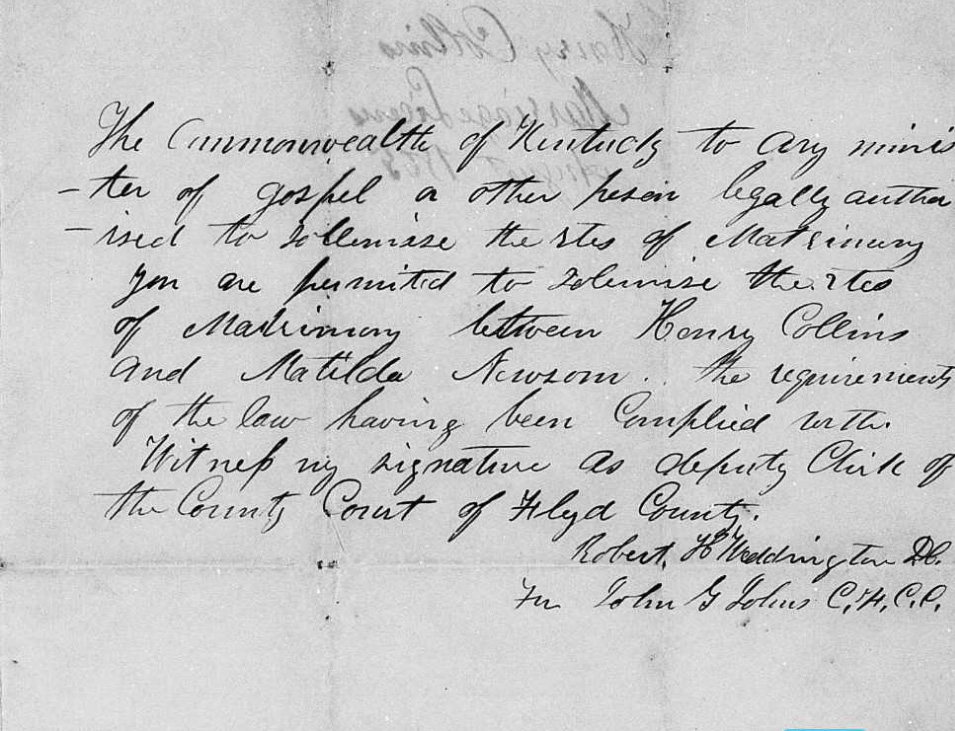 Henry Collins
Marriage License
The Commonwealth of Kentucky to any minis
-ter of gospel or other person legally autho
-ised to sollemisse the rites of Matrimony
you are permitted to solemise the rites
of Matrimony between Henry Collins
and Matilda Newsom. The requirements
of the law having been Complied with.
Witness my signature as deputy Clirk of
the County Court of Flyd County.
Robert H Weddington DC.
For John G Johns C.F.C.C.